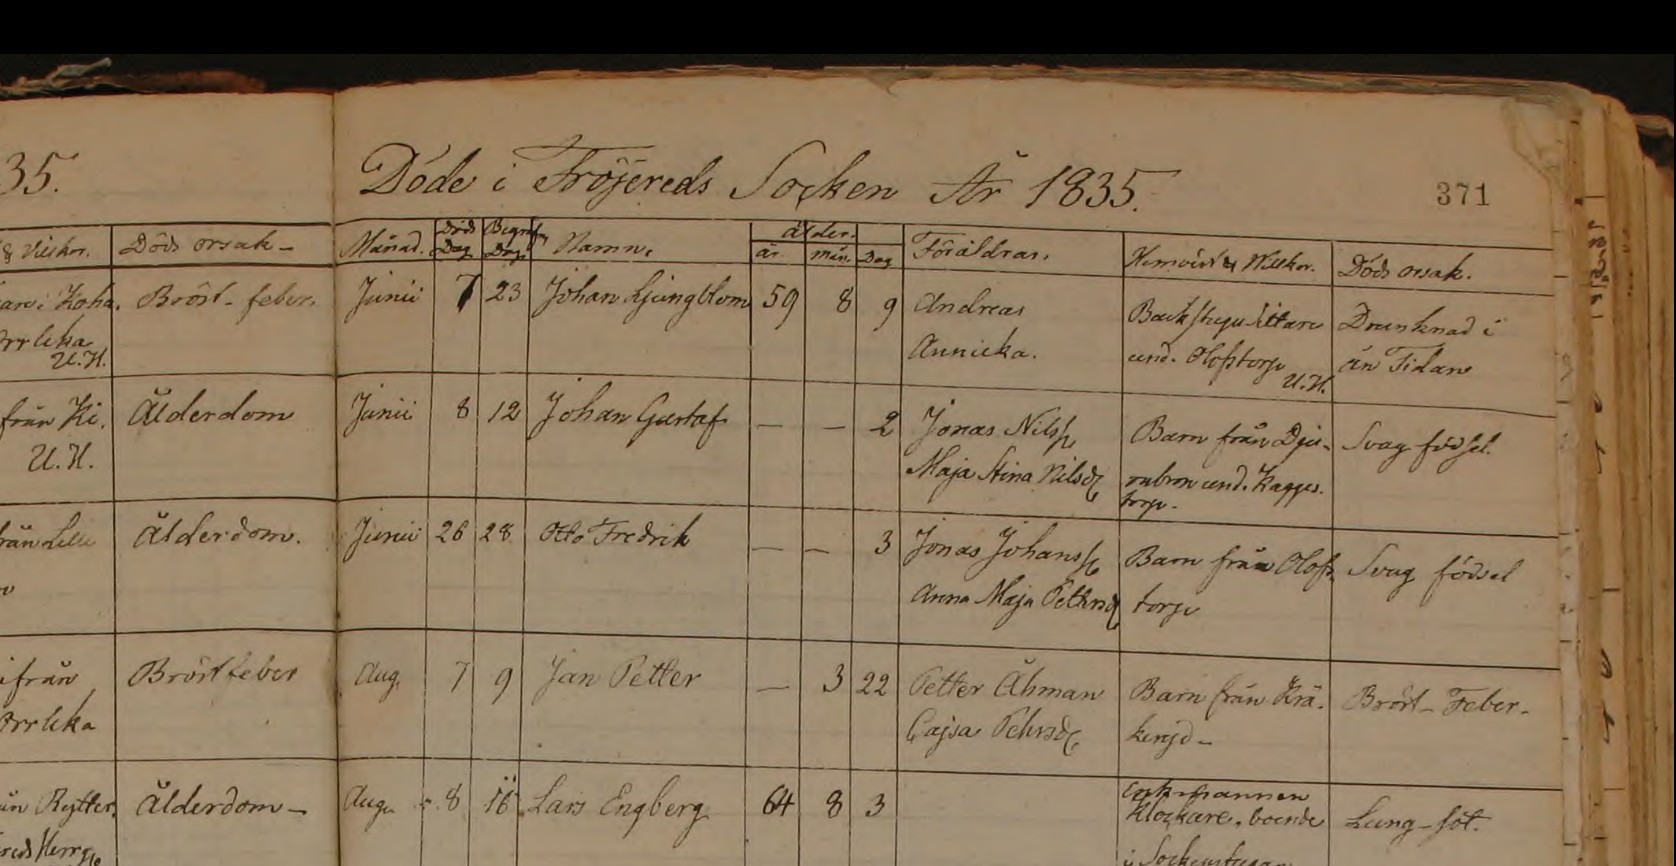 35.
Döde i Fröjereds Socken År 1835.
371
& Villkor. Döds orsak-
Månad. Döds Dag Begrafn. Dag Namn. ålder. år. mån. Dag Föräldrar. Hemvist & Willkor. Döds orsak.
Bröst-feber.
U.H.
Junii 7 23 Johan Ljungblom 59 8 9 Andreas
Annicka.
Backstugu-sittare
und. Olofstorp
U.H.
Drunknad i
ån Tidan
från Ki.
U.H.
Ålderdom
Junii 8 12 Johan Gustaf — — 2 Jonas Nilss.
Maja Stina Nilsd.
Barn från Dju-
rabron und. Kagges-
torp.
Svag födsel.
från Lilla
Ålderdom.
Junii 26 28 Otto Fredrik — — 3 Jonas Johanss.
Anna Maja Pettersd.
Barn från Olofs-
torp
Svag födsel
ifrån
Orrleka
Bröstfeber
Aug. 7 9 Jan Petter — 3 22 Petter Åhman
Cajsa Pehrsd.
Barn från Krä-
Bröst-Feber-
Ålderdom-
Aug. 8 16 Lars Engberg 64 8 3
Enkemannen
Klockare, boende
i Sockenstugan
Lung-sot.